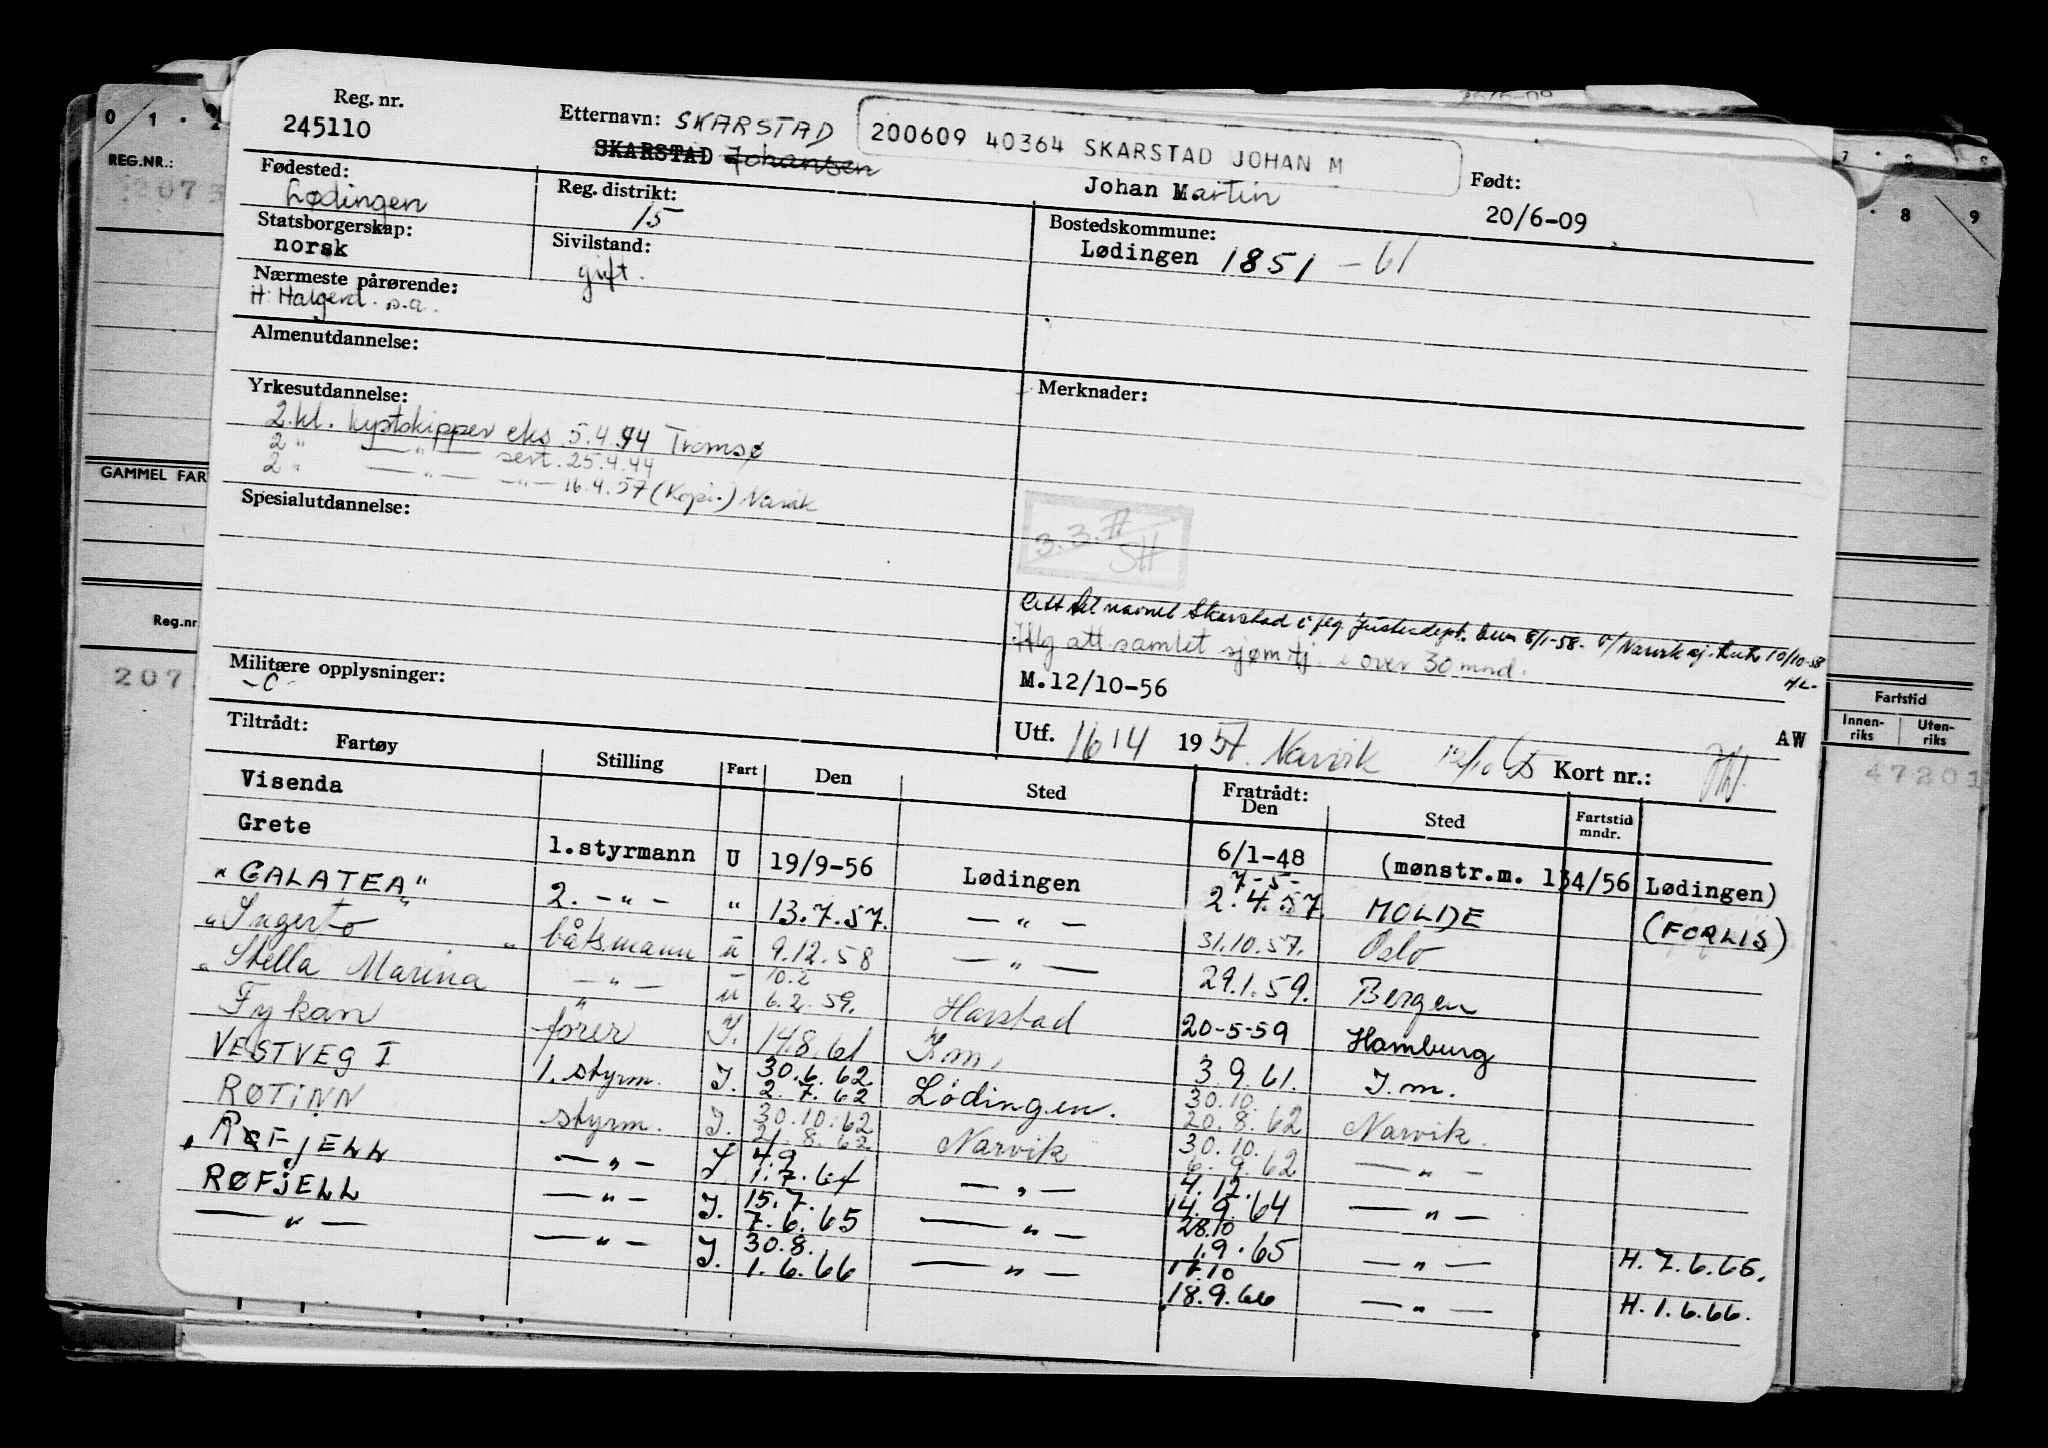 Reg. nr.
245110
Etternavn: SKARSTAD
SKARSTAD Johansen
200609 40364 SKARSTAD JOHAN M
Johan Martin
Født:
20/6-09
Fødested:
Lødingen
Reg. distrikt:
15
Bostedskommune:
Lødingen 1851 - 61
Statsborgerskap:
norsk
Sivilstand:
gift.
Nærmeste pårørende:
H: Halgerd s.a.
Almenutdannelse:
Yrkesutdannelse:
2. kl. kystskipper eks 5.4.44 Tromsø
2 " — " — sert. 25.4.44
2 " — " — — " — 16.4.57 (Kopi.) Narvik
Merknader:
Spesialutdannelse:
3.3.
SH
til navnet Skarstad i flg. 8/1-58. 10/10-58
Ifig att samlet sjømtj. i over 30 mnd.
M.12/10-56
Militære opplysninger:
-0-
Utf. 16/4 1957. Narvik
AW
Kort nr.:
Tiltrådt:
Fartøy Stilling Fart Den Sted Fratrådt: Den Sted Fartstid mndr.
Visenda 6/1-48
Grete 1.styrmann U 19/9-56 Lødingen 7-5- 2.4.57. (mønstr.m. 134/56 Lødingen)
"GALATEA" 2. -"- " 13.7.57. — " — 31.10.57. MOLDE (FORLIS)
"Ingerto" båtsmann u 9.12.58 — " — 29.1.59. Oslo
"Stella Marina — " — u 10.2 6.2.59. Harstad 20-5-59 Bergen
Fykan fører I. 14.8.61 I.m. 3.9.61. Hamburg
VESTVEG I 1. styrm. I. 30.6.62 2.7.62 Lødingen. 30.10. 20.8.62 I.m.
RØTINN styrm. I. 30.10.62 21.8.62 Narvik 30.10. 6.9.62 Narvik.
RØFJELL — " — I 4.9 1.7.64 — " — 4.12. 14.9.64 — " —
RØFJELL — " — I. 15.7. 7.6.65 — " — 28.10 1.9.65 — " —
— " — — " — I. 30.8. 1.6.66 — " — 11.10 18.9.66 — " — H. 7.6.65.
— " — H. 1.6.66.
REG.NR.:
GAMMEL FAR
Reg.nr
207
Fartstid
Innenriks
Utenriks
47201